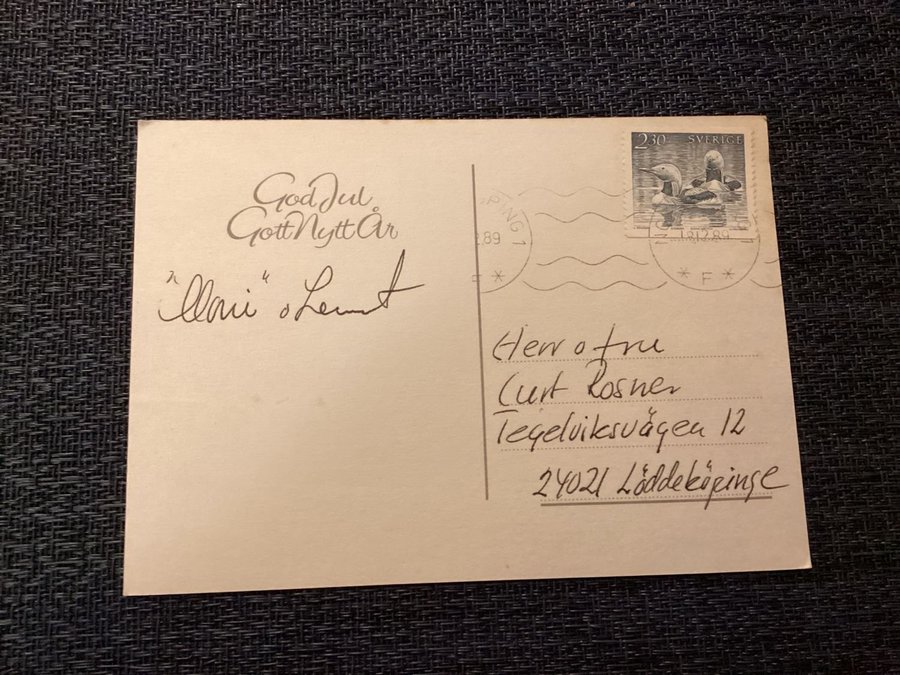 God Jul
Gott Nytt År
o Lennart
2.30 SVERIGE
PING 1
2.89
* F *
Herr o fru
Curt Rosner
Tegelviksvägen 12
24021 Löddeköpinge